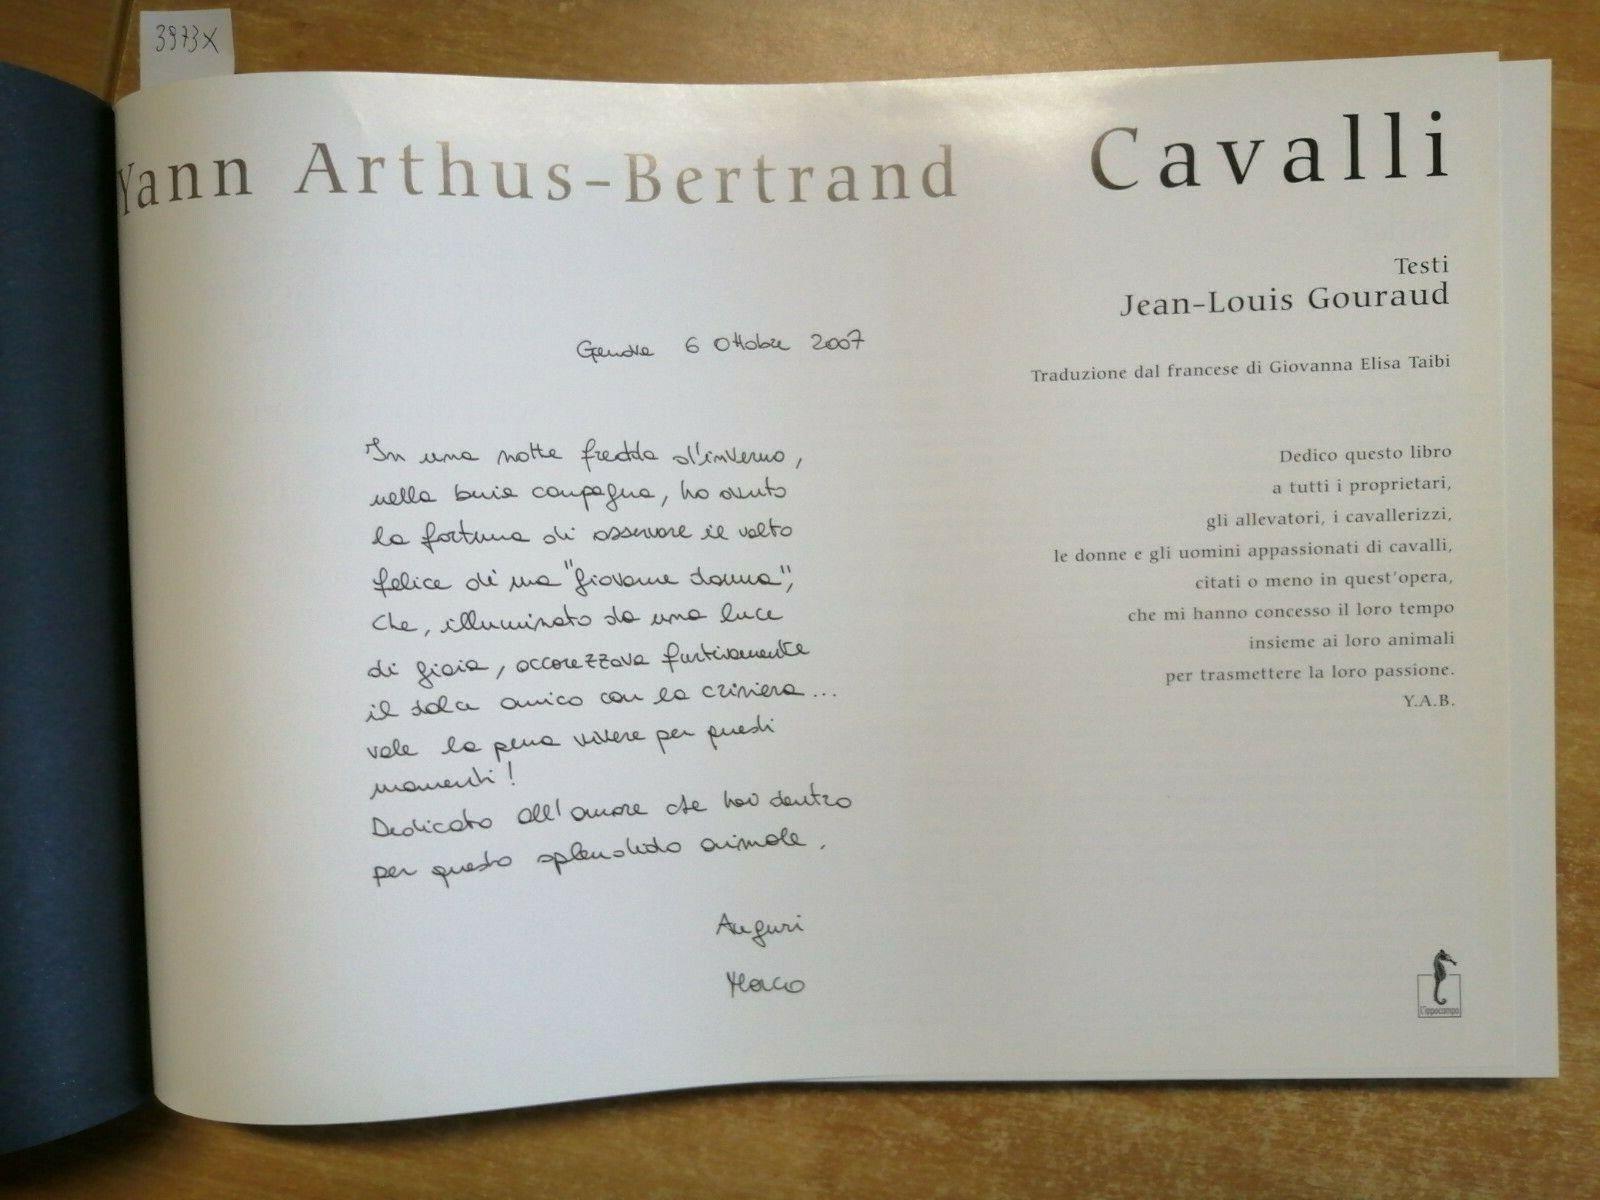 3973X
Yann Arthus-Bertrand Cavalli
Testi
Jean-Louis Gouraud
Traduzione dal francese di Giovanna Elisa Taibi
Dedico questo libro
a tutti i proprietari,
gli allevatori, i cavallerizzi,
le donne e gli uomini appassionati di cavalli,
citati o meno in quest'opera,
che mi hanno concesso il loro tempo
insieme ai loro animali
per trasmettere la loro passione.
Y.A.B.
Genova 6 Ottobre 2007
In una notte fredda d'inverno,
nella buia campagna, ho avuto
la fortuna di osservare il volto
felice di una "giovane donna",
che, illuminato da una luce
di gioia, accarezzava furtivamente
il dolce amico con la criniera...
vale la pena vivere per questi
momenti!
Dedicato all'amore che hai dentro
per questo splendido animale.
Auguri
Marco
L'ippocampo